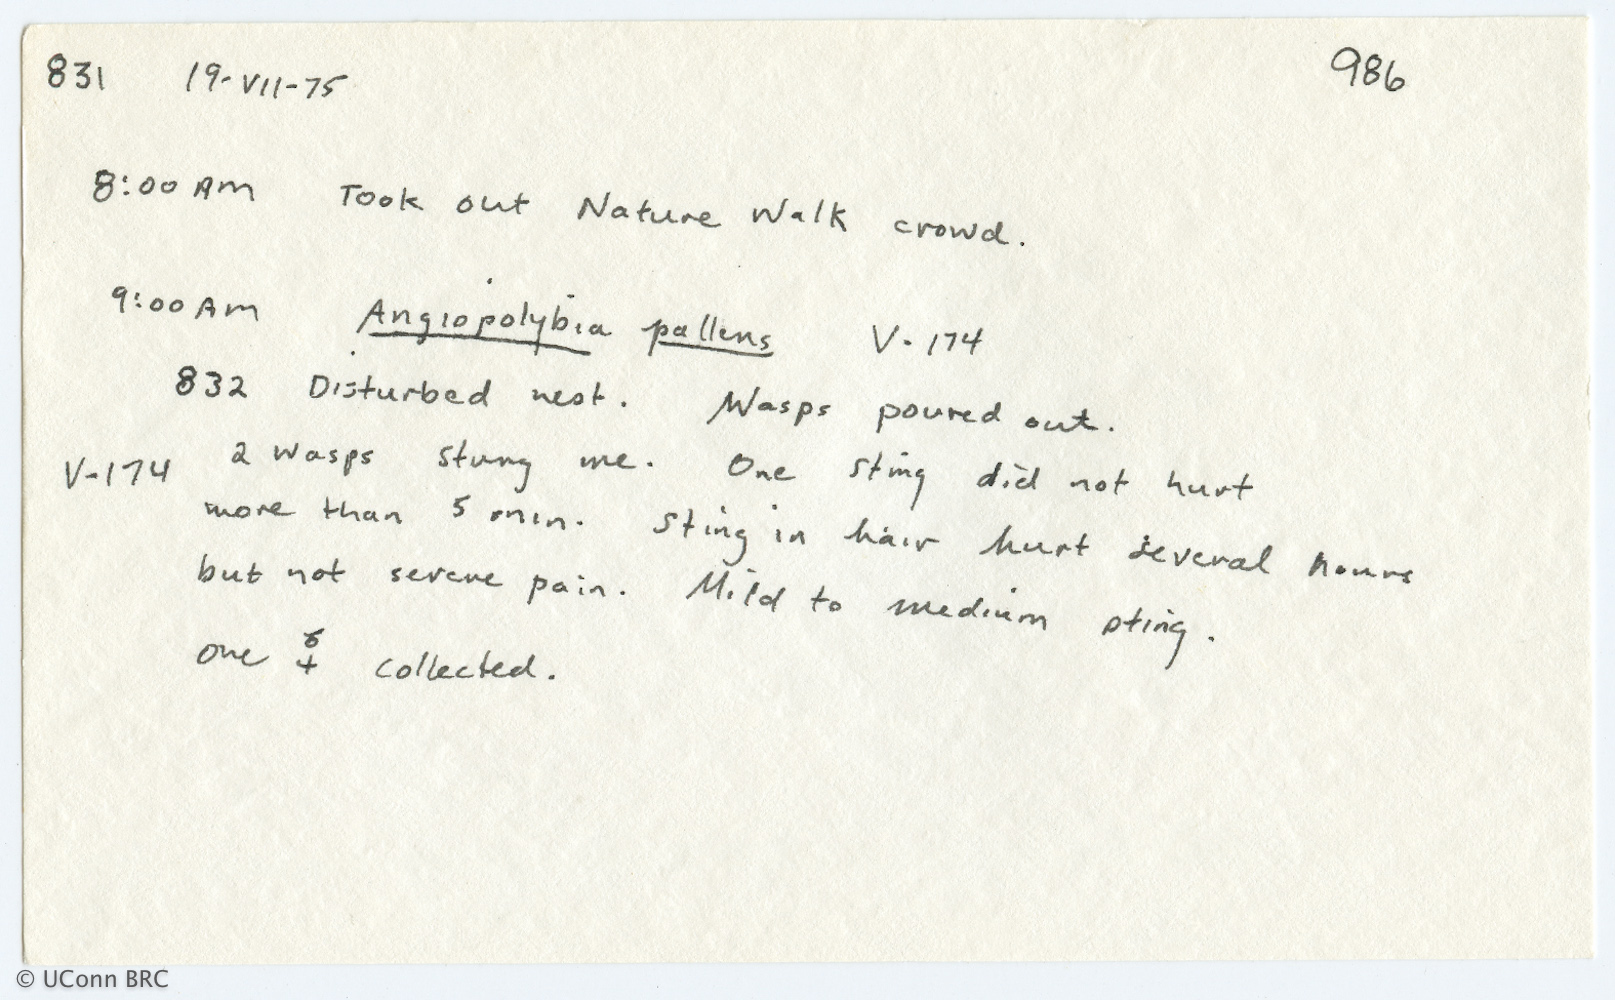 831 19-VII-75 986
8:00 AM Took out Nature Walk crowd.
9:00 AM Angiopolybia pallens V-174
832 Disturbed nest. Wasps poured out.
V-174 2 wasps stung me. One sting did not hurt
more than 5 min. Sting in hair hurt several hours
but not severe pain. Mild to medium sting.
one collected.
© UConn BRC